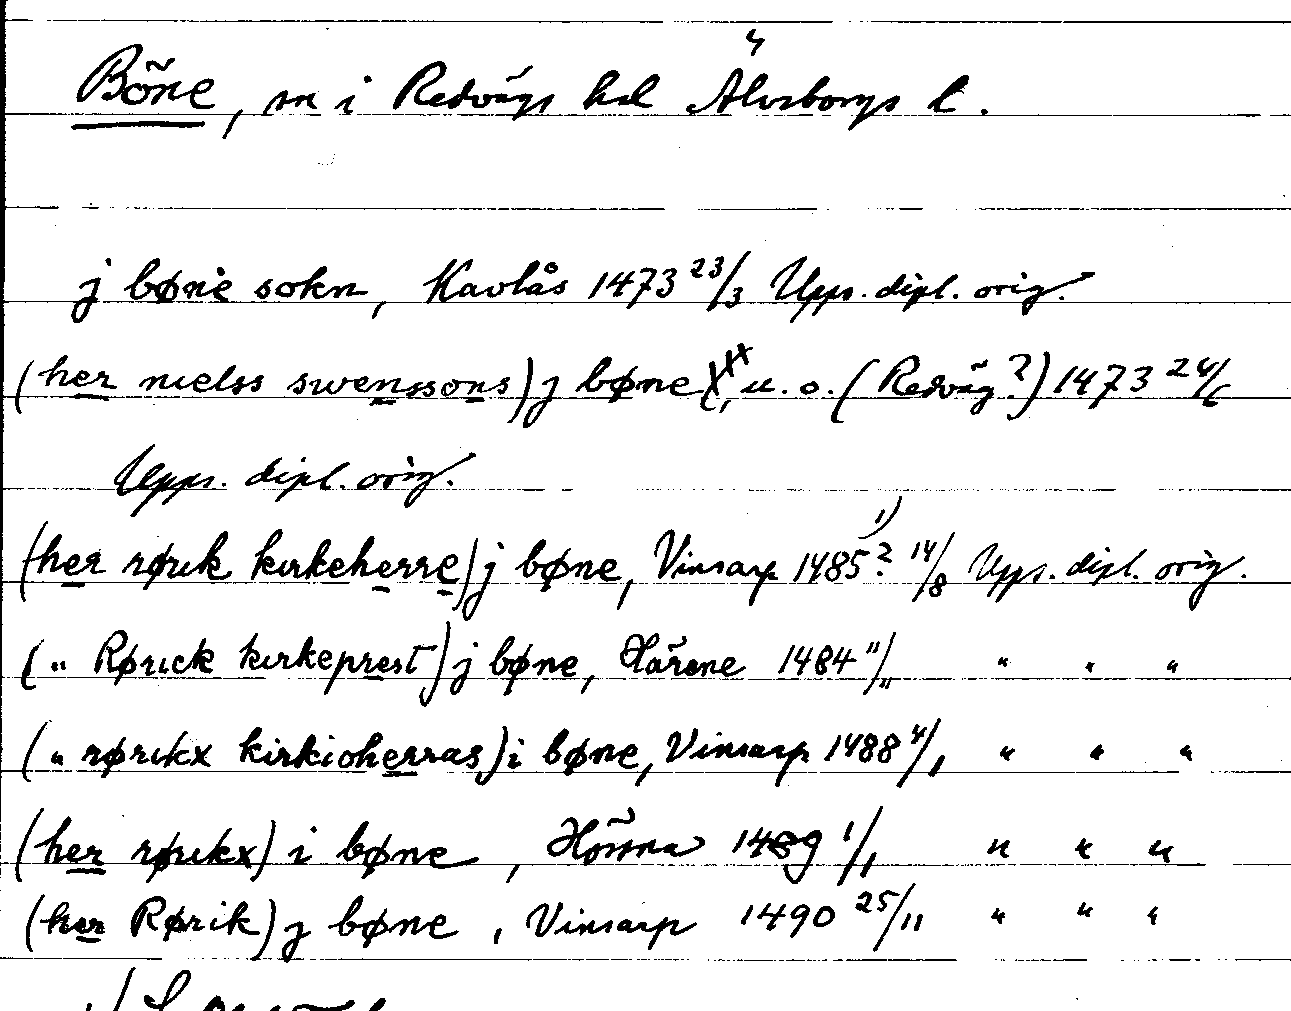 4
Böne, sn i Redvägs hd Älvsborgs l.
j bøne sokn, Kavlås 1473 23/3 Upps. dipl. orig.
(her nielss swenssons) j bøne xxx, u. o. (Redväg?) 1473 24/6
Upps. dipl. orig.
(her rørik kirkeherre) j bøne, Vinsarp 1485? 1) 14/8 Upps. dipl. orig.
(" Rørick kirkeprest) j bøne, Härene 1484 "/" " " "
(" rørikx kirkioherras) i bøne, Vinsarp 1488 4/1 " " "
(her rørikx) i bøne, Hössna 1489 1/1 " " "
(her Rørik) j bøne, Vinsarp 1490 25/11 " " "